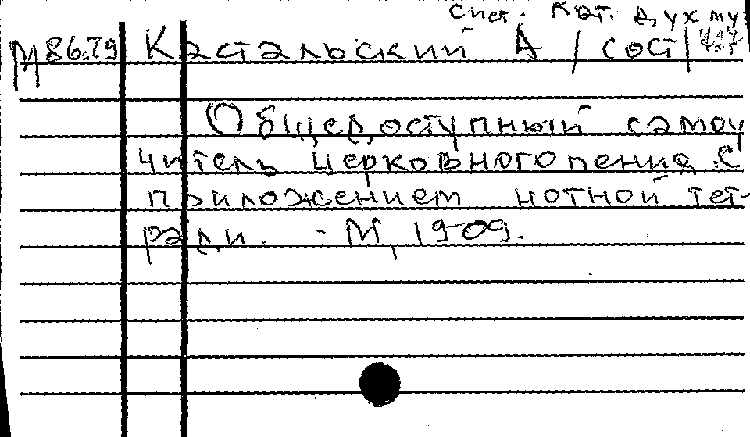 Сист. Кат. Дух му
М 86.79 Кастальский А /сост/
Общедоступный самоу
читель церковного пения. С
приложением нотной тет-
ради. - М, 1909.